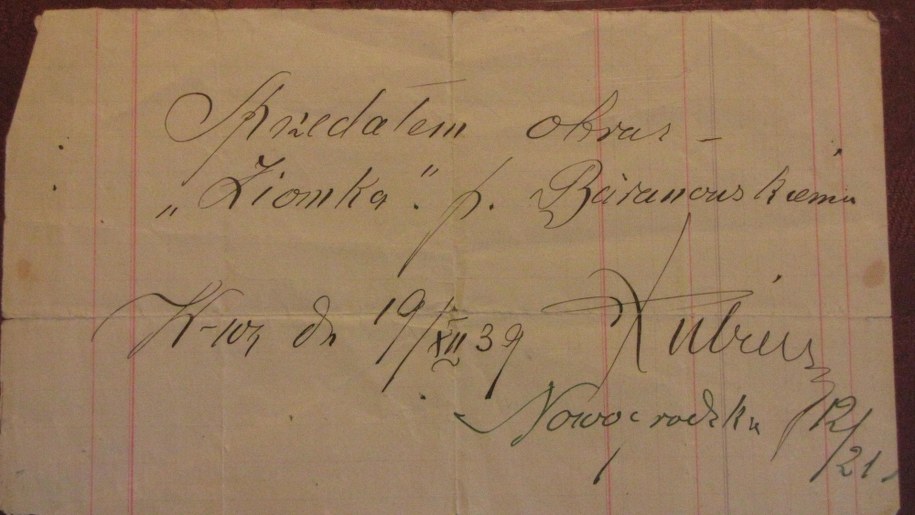 Sprzedałem obraz –
„Ziomka". p. Baranowskiemu
W-wa dn 19/XII 39
Nowogrodzka 12/21